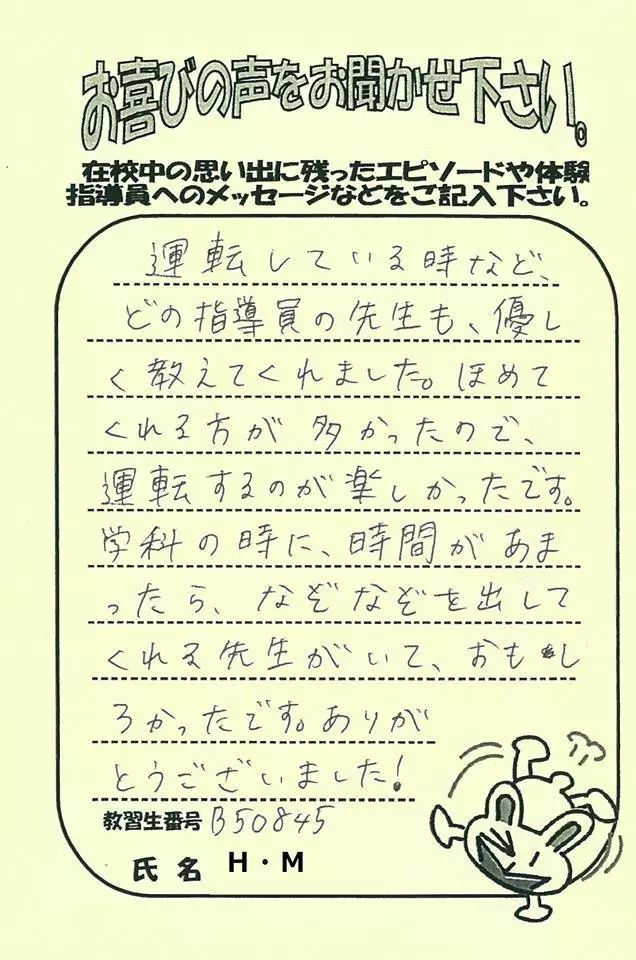 お喜びの声をお聞かせ下さい。
在校中の思い出に残ったエピソードや体験
指導員へのメッセージなどをご記入下さい。
運転している時など、
どの指導員の先生も、優し
く教えてくれました。ほめて
くれる方が多かったので、
運転するのが楽しかったです。
学科の時に、時間があま
ったら、なぞなぞを出して
くれる先生がいて、おもし
ろかったです。ありが
とうございました!
教習生番号 B50845
氏名 H・M